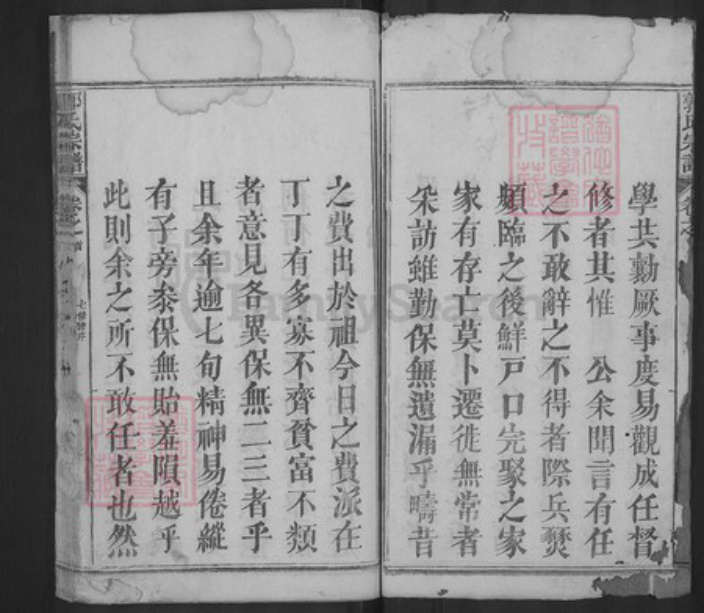 學共勷厥事度易觀成任督
修者其惟　公余聞言有任
之不敢辭之不得者際兵燹
頻臨之後鮮戸口完聚之家
家有存亡莫卜遷徙無常者
采訪雖勤保無遺漏乎疇昔
之費出於祖今日之費派在
丁丁有多寡不齊貧富不類
者意見各異保無二三者乎
且余年逾七旬精神易倦縱
有子旁叅保無貽羞隕越乎
此則余之所不敢任者也然
郭氏宗譜
卷之首
七修譜序
FamilySearch